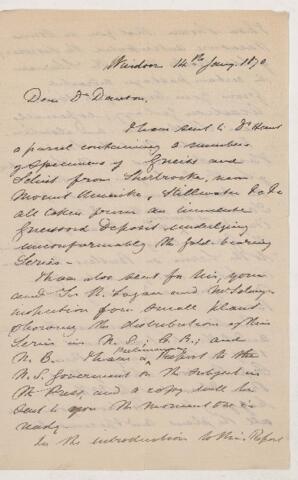 Windsor 14th Jany. 1870
Dear Dr Dawson,
I have sent to Dr Hunt
a parcel containing a number
of specimens of Gneiss and
Schist from Sherbrooke, near
Mount Uniacke, Stillwater &c &c
all taken from an immense
Gneissoid Deposit underlying
unconformably the gold-bearing
Series –
I have also sent for his, your
and Sir W. Logan and Mr Selwyn
inspection four small plans
showing the distribution of this
Series in N.S; C.B; and
N.B. I have a Preliminary Report to the
N.S. Government on the subject in
the Press, and a copy will be
sent to you the moment it is
ready.
In the introduction to this Report